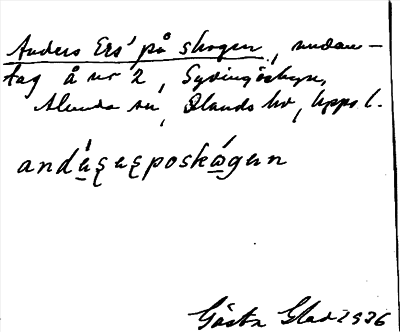 Anders Ers' på skogen, undan-
tag å nr 2, Sydingösbyn,
Alunda sn, Olands hd, Upps l.
Gösta Glad 1926